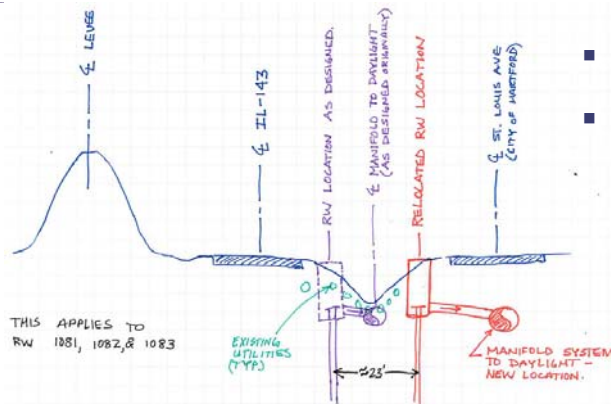 ℄ LEVEE
℄ IL-143
RW LOCATION AS DESIGNED.
℄ MANIFOLD TO DAYLIGHT
(AS DESIGNED ORIGINALLY)
RELOCATED RW LOCATION
℄ ST. LOUIS AVE
(CITY OF HARTFORD)
THIS APPLIES TO
RW 1081, 1082, & 1083
EXISTING
UTILITIES
(TYP.)
≈23'
MANIFOLD SYSTEM
TO DAYLIGHT -
NEW LOCATION.